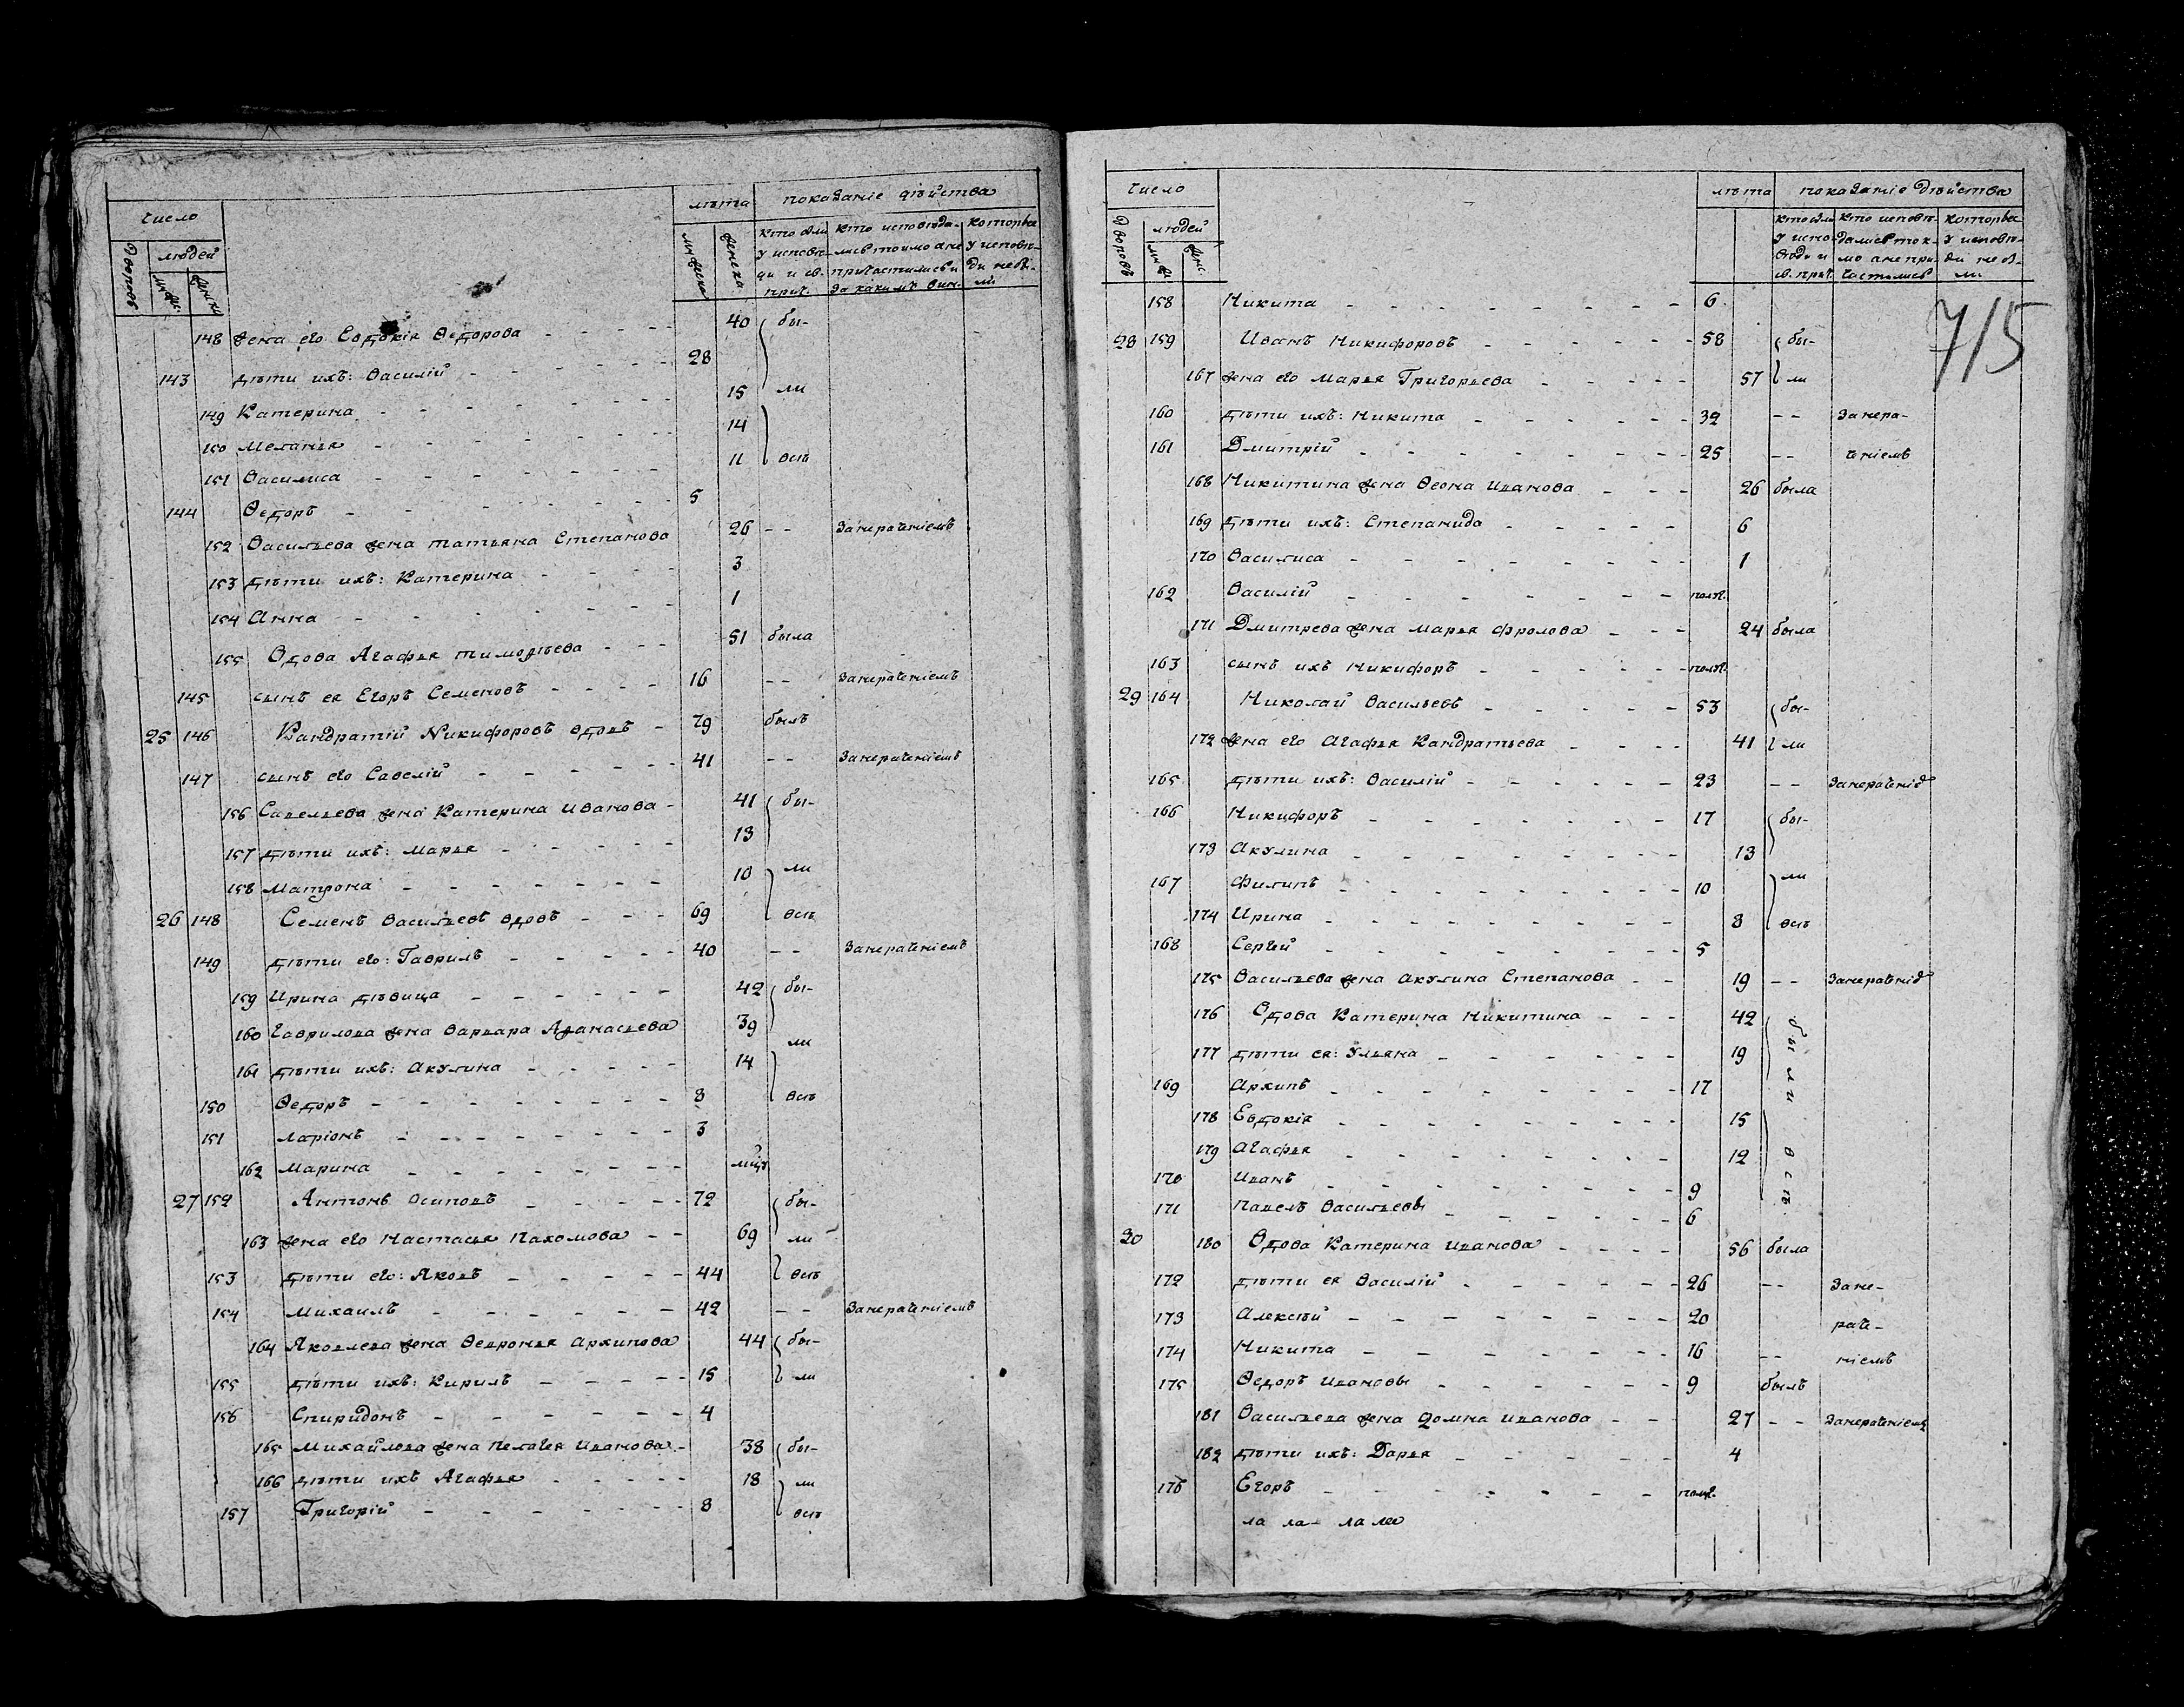 число
лѣта показаніе дѣйства
дворовъ людей
мужска женска
кто были у исповѣди и св. прич.
кто исповѣдались токмо а не причастились и за какимъ вин.
которые у исповѣди не были
148 жена его Евдокія Ѳедорова 40 бы-
143 дѣти ихъ: Василій 28
149 Катерина 15 ли
150 Меланья 14
151 Василиса 11 всѣ
144 Ѳедоръ 5
152 Васильева жена Татьяна Степанова 26 - - Занераченіемъ
153 дѣти ихъ: Катерина 3
154 Анна 1
155 Вдова Агафья Тимофѣева 51 была
145 сынъ ея Егоръ Семеновъ 16 - - Занераченіемъ
25 146 Кандратій Никифоровъ вдовъ 79 былъ
147 сынъ его Савелій 41 - - Занераченіемъ
156 Савельева жена Катерина Иванова 41 бы-
157 дѣти ихъ: Марья 13
158 Матрона 10 ли
26 148 Семенъ Васильевъ вдовъ 69 всѣ
149 дѣти его: Гаврилъ 40 - - Занераченіемъ
159 Ирина дѣвица 42 бы-
160 Гаврилова жена Варвара Афанасьева 39 ли
161 дѣти ихъ: Акулина 14
150 Ѳедоръ 8 всѣ
151 Ларіонъ 3
162 Марина
27 152 Антонъ Осиповъ 72 бы-
163 жена его Настасья Пахомова 69 ли
153 дѣти его: Яковъ 44 всѣ
154 Михаилъ 42 - - Занераченіемъ
164 Яковлева жена Ѳевронья Архипова 44 бы-
155 дѣти ихъ: Кирилъ 15 ли
156 Спиридонъ 4
165 Михайлова жена Пелагея Иванова 38 бы-
166 дѣти ихъ Агафья 18 ли
157 Григорій 8 всѣ
число
лѣта показаніе дѣйства
дворовъ людей
муж. жен.
кто были у исповѣди и св. прич.
кто исповѣдались токмо а не причастились
которые у исповѣди не были
715
158 Никита 6
28 159 Иванъ Никифоровъ 58 бы-
167 жена его Марья Григорьева 57 ли
160 дѣти ихъ: Никита 32 - - Занера-
161 Дмитрій 25 - - ченіемъ
168 Никитина жена Ѳеона Иванова 26 была
169 дѣти ихъ: Степанида 6
170 Василиса 1
162 Василій полг.
171 Дмитрева жена Марья Фролова 24 была
163 сынъ ихъ Никифоръ полг.
29 164 Николай Васильевъ 53 бы-
172 жена его Агафья Кандратьева 41 ли
165 дѣти ихъ: Василій 23 - - Занераченіе
166 Никифоръ 17 бы-
173 Акулина 13
167 Филипъ 10 ли
174 Ирина 8 всѣ
168 Сергій 5
175 Васильева жена Акулина Степанова 19 - - Занераченіе
176 Вдова Катерина Никитина 42 были всѣ
177 дѣти ея: Ульяна 19
169 Архипъ 17
178 Евдокія 15
179 Агафья 12
170 Иванъ 9
171 Павелъ Васильевы 6
30 180 Вдова Катерина Иванова 56 была
172 дѣти ея Василій 26 - - Зане-
173 Алексѣй 20 рач-
174 Никита 16 - - ніемъ
175 Ѳедоръ Ивановы 9 былъ
181 Васильева жена Домна Иванова 27 - - Занераченіемъ
182 дѣти ихъ: Дарья 4
176 Егоръ полг.
ла ла- ла ла